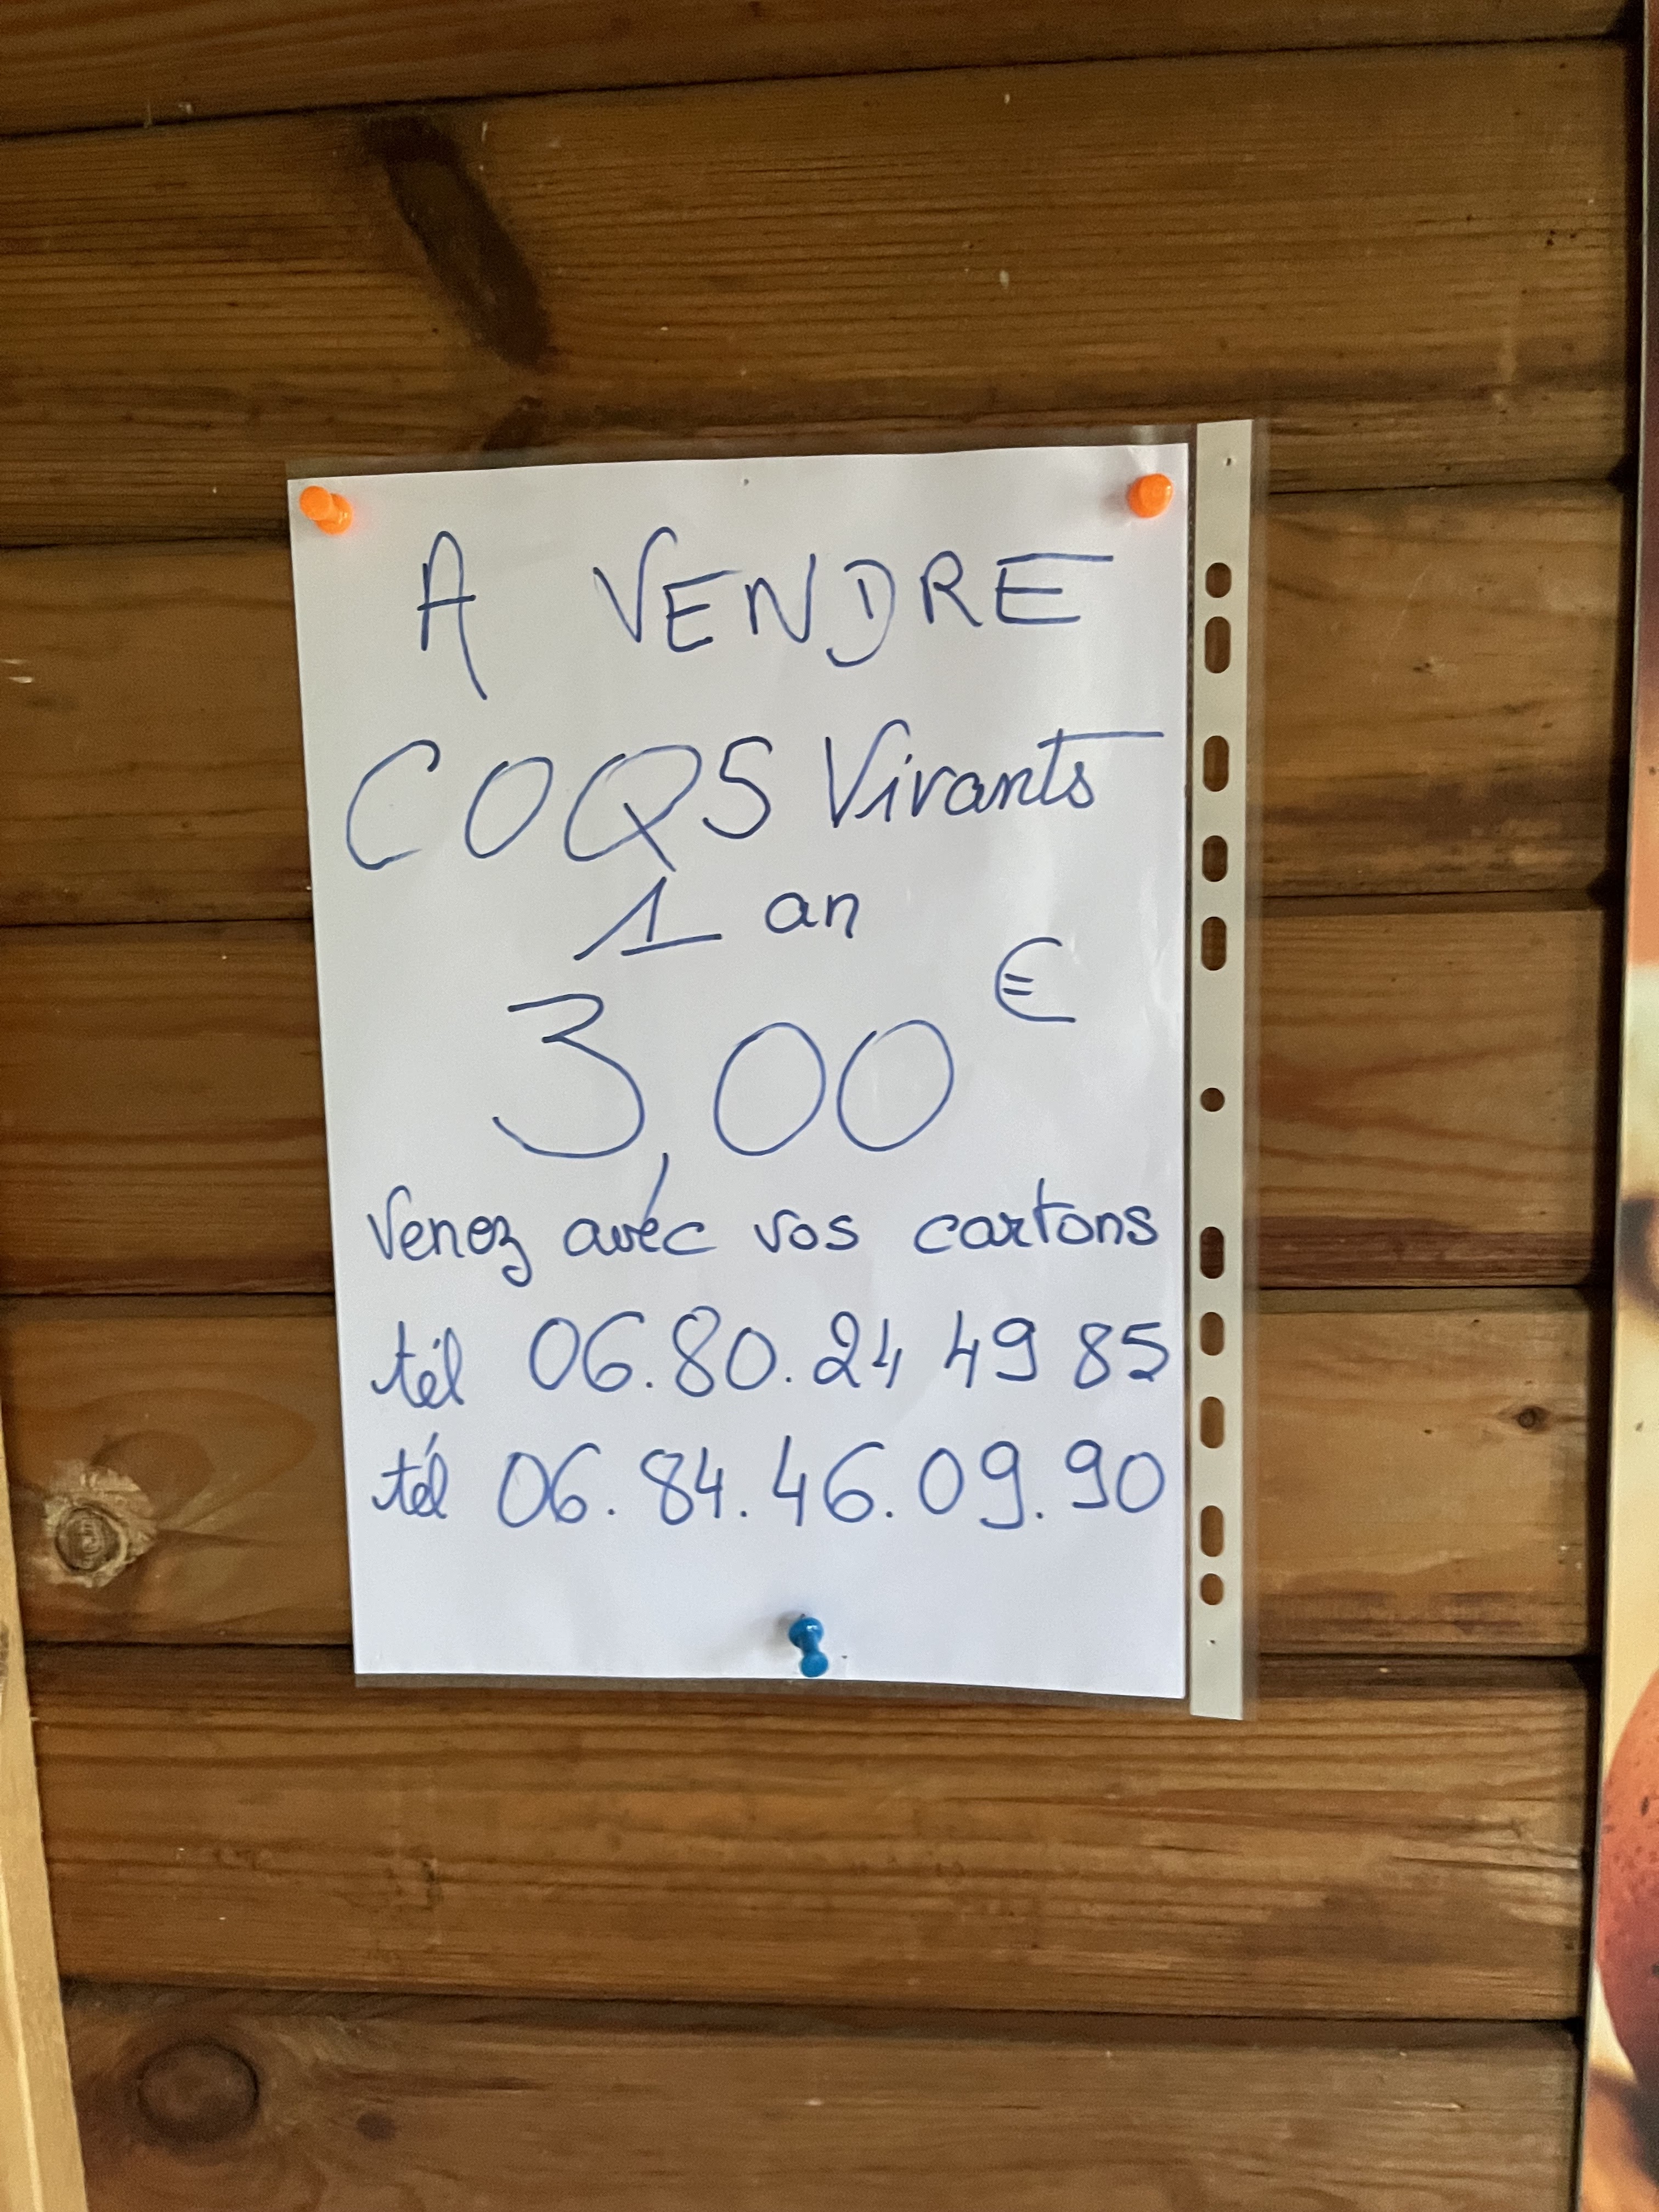 A VENDRE
COQS Vivants
1 an
3,00 €
Venez avec vos cartons
tél 06.80.24 49 85
tél 06.84.46.09.90